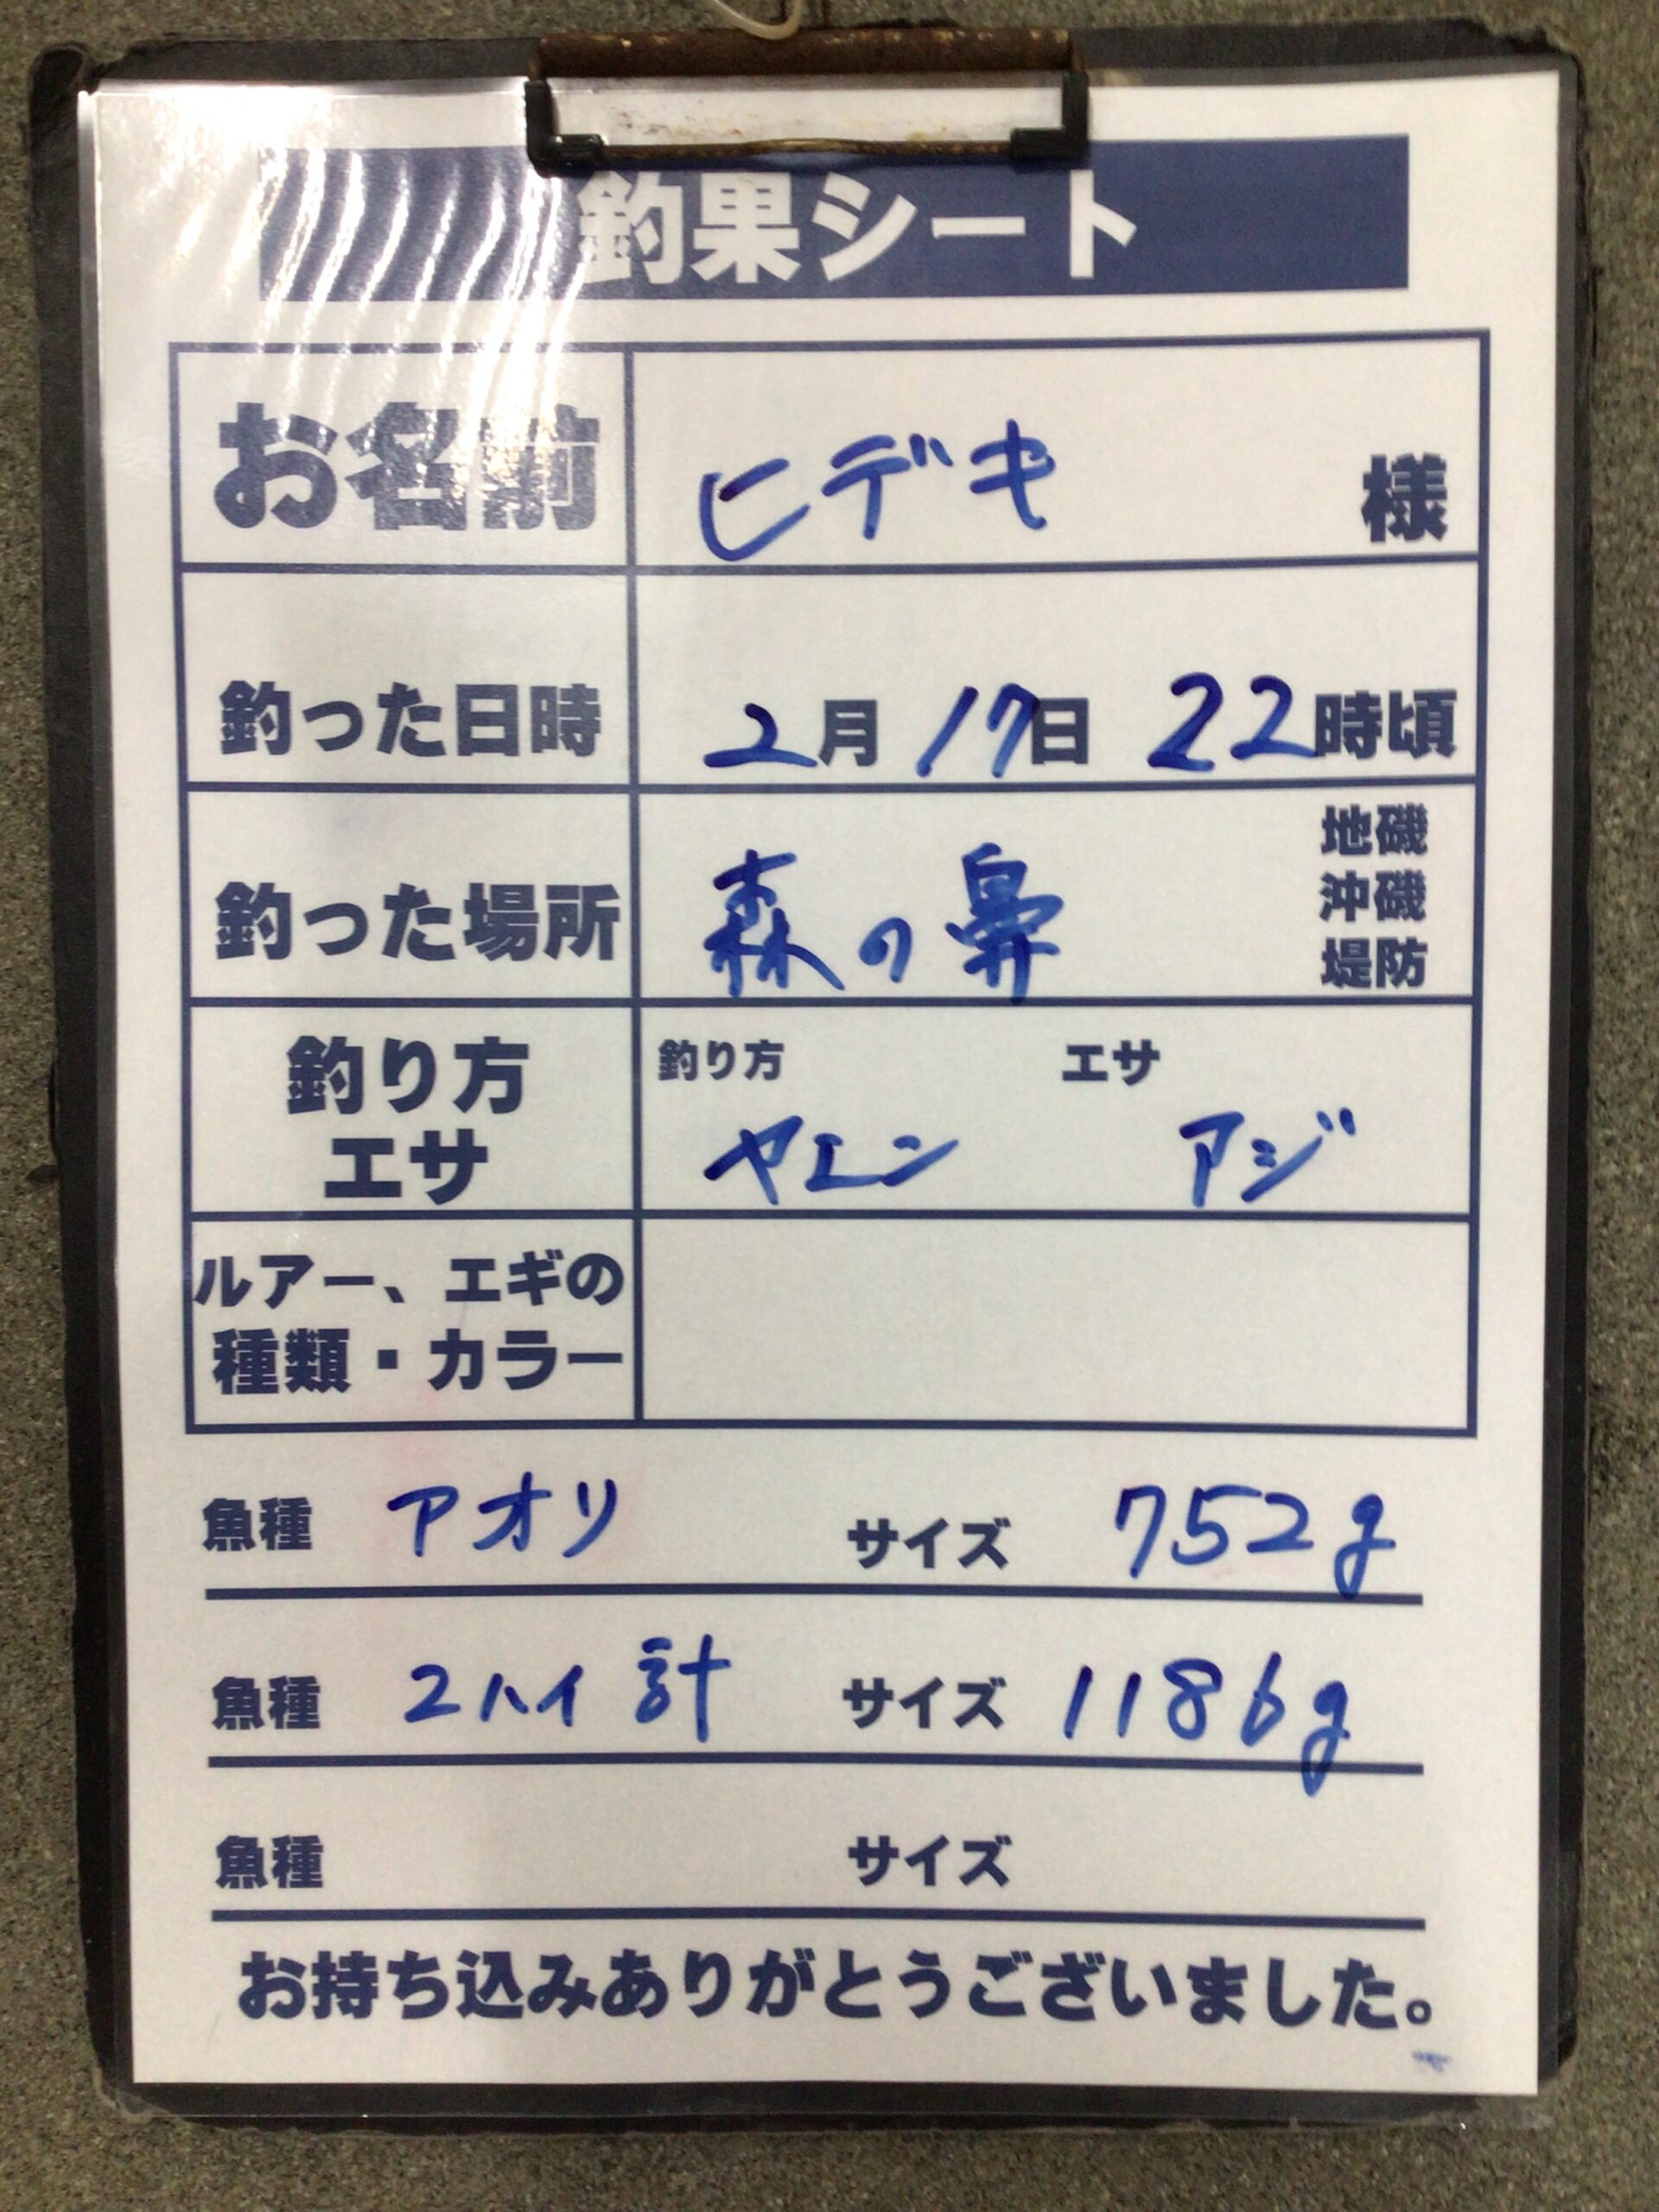 釣果シート
お名前 ヒデキ 様
釣った日時 2月 17日 22時頃
釣った場所 森の鼻 地磯
沖磯
堤防
釣り方
エサ
釣り方 エサ
ヤエン アジ
ルアー、エギの
種類・カラー
魚種 アオリ サイズ 752g
魚種 2ハイ 計 サイズ 1186g
魚種 サイズ
お持ち込みありがとうございました。